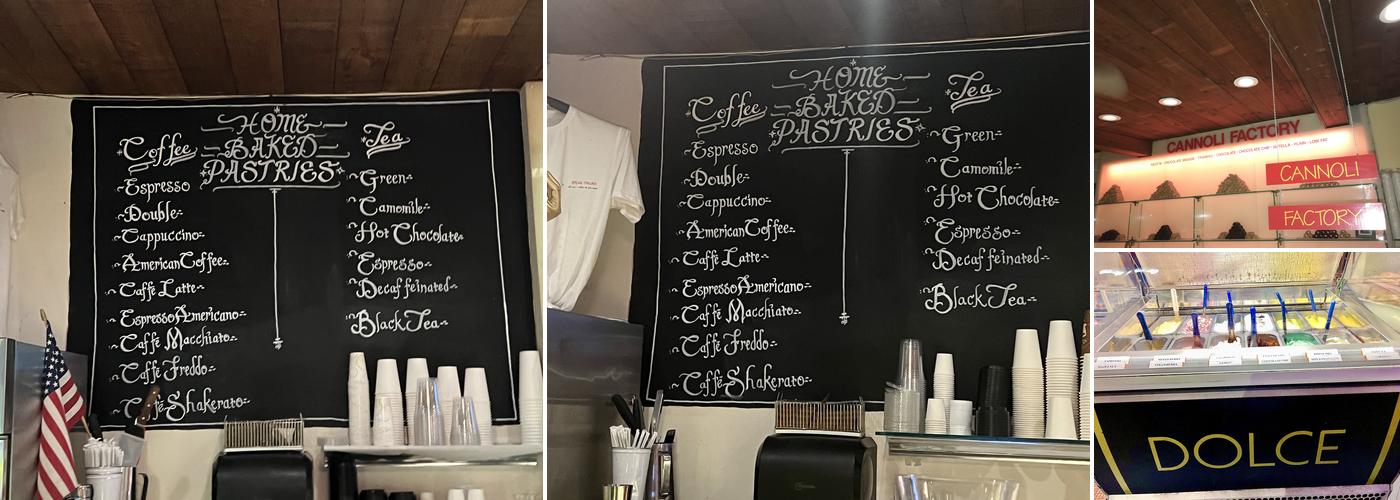 HOME
BAKED
PASTRIES
Coffee
Espresso
Double
Cappuccino
American Coffee
Caffé Latte
Espresso Americano
Caffé Macchiato
Caffé Freddo
Caffé Shakerato
Tea
Green
Camomile
Hot Chocolate
Espresso
Decaffeinated
Black Tea
HOME
BAKED
PASTRIES
Coffee
Espresso
Double
Cappuccino
American Coffee
Caffé Latte
Espresso Americano
Caffé Macchiato
Caffé Freddo
Caffé Shakerato
Tea
Green
Camomile
Hot Chocolate
Espresso
Decaffeinated
Black Tea
CANNOLI FACTORY
CANNOLI
FACTORY
DOLCE